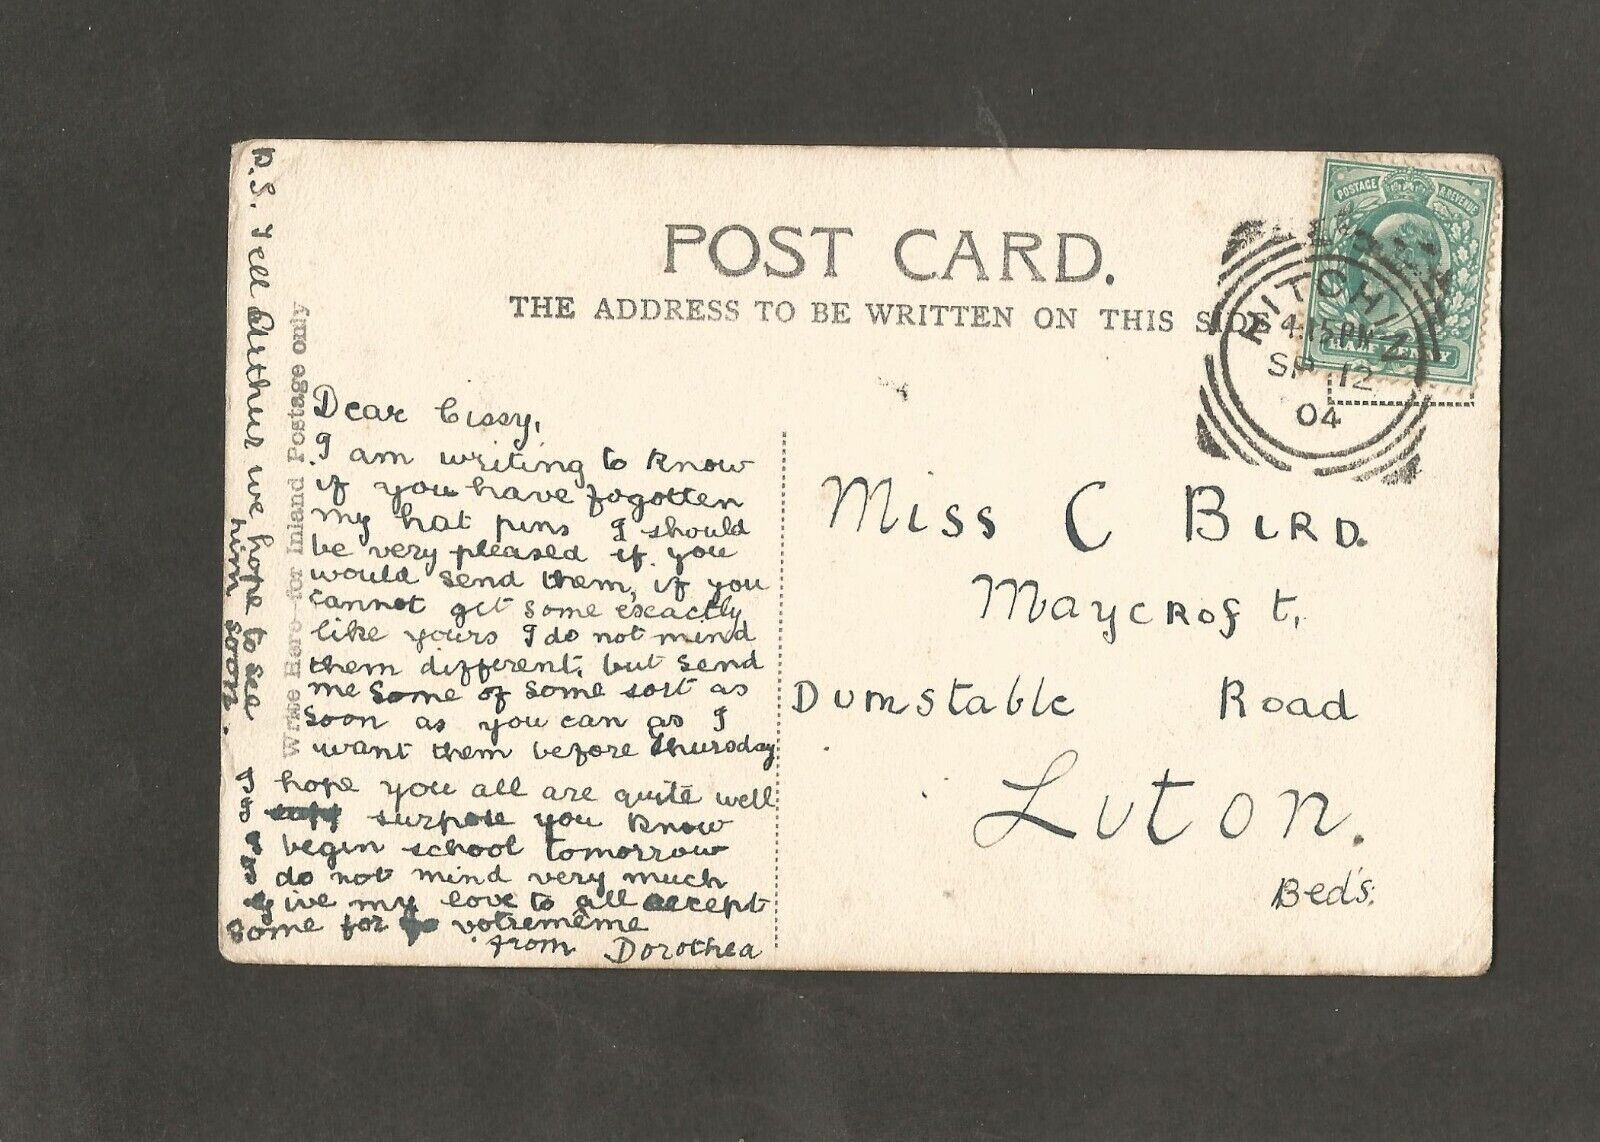 POST CARD.
THE ADDRESS TO BE WRITTEN ON THIS SIDE
Write Here for Inland Postage only
POSTAGE & REVENUE
HALF PENNY
HITCHIN
4.15 PM
SP 12
04
Dear Cissy,
I am writing to know
if you have fogotten
my hat pins I should
be very pleased if you
would send them, if you
cannot get some exactly
like yours I do not mind
them different, but send
me some of some sort as
soon as you can as I
want them before thursday
I hope you all are quite well
I surpose you know
I begin school tomorrow
I do not mind very much
give my love to all accept
some for votrememe
from Dorothea
P.S. Tell Arthur we hope to see
him soon.
Miss C Bird.
Maycroft,
Dumstable Road
Luton.
Bed's.